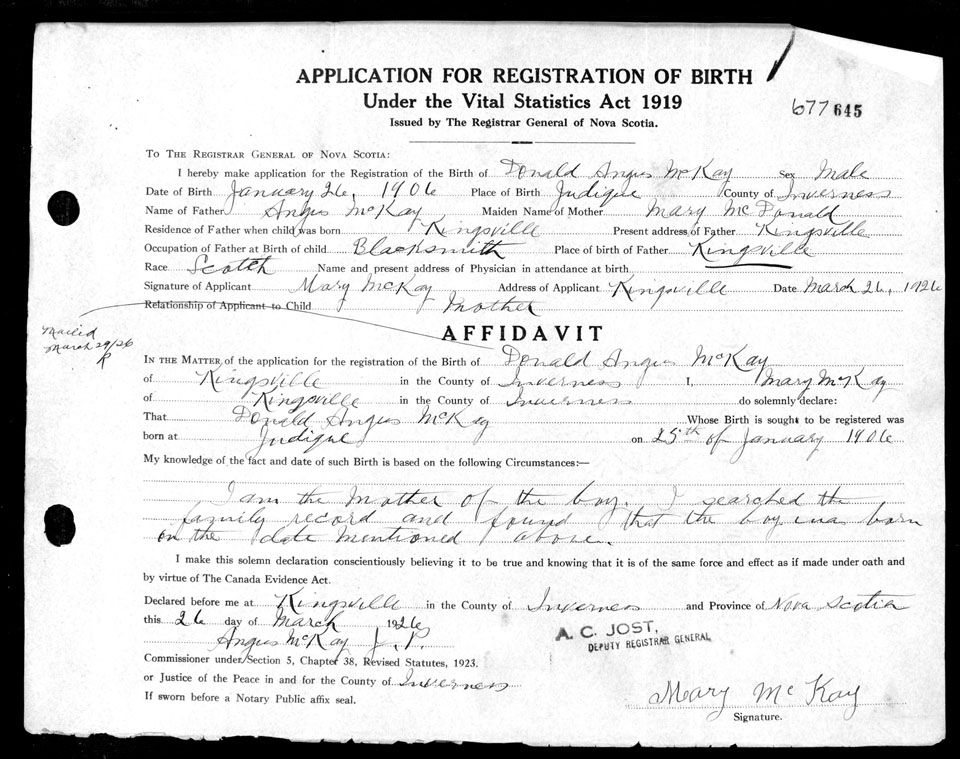 APPLICATION FOR REGISTRATION OF BIRTH
Under the Vital Statistics Act 1919
Issued by The Registrar General of Nova Scotia.
677 645
TO THE REGISTRAR GENERAL OF NOVA SCOTIA:
I hereby make application for the Registration of the Birth of Donald Angus McKay Sex Male
Date of Birth January 26, 1906 Place of Birth Judique County of Inverness
Name of Father Angus McKay Maiden Name of Mother Mary McDonald
Residence of Father when child was born Kingsville Present address of Father Kingsville
Occupation of Father at Birth of child Blacksmith Place of birth of Father Kingsville
Race Scotch Name and present address of Physician in attendance at birth
Signature of Applicant Mary McKay Address of Applicant Kingsville Date March 26, 1926
Relationship of Applicant to Child Mother
Mailed
March 29/26
R
AFFIDAVIT
IN THE MATTER of the application for the registration of the Birth of Donald Angus McKay
of Kingsville in the County of Inverness I, Mary McKay
of Kingsville in the County of Inverness do solemnly declare:
That Donald Angus McKay Whose Birth is sought to be registered was
born at Judique on 25th of January 1906
My knowledge of the fact and date of such Birth is based on the following Circumstances:—
I am the Mother of the boy. I searched the
family record and found that the boy was born
on the date mentioned above.
I make this solemn declaration conscientiously believing it to be true and knowing that it is of the same force and effect as if made under oath and
by virtue of The Canada Evidence Act.
Declared before me at Kingsville in the County of Inverness and Province of Nova Scotia
this 26 day of March 1926
Angus McKay J.P.
A. C. JOST,
DEPUTY REGISTRAR GENERAL
Commissioner under Section 5, Chapter 38, Revised Statutes, 1923.
or Justice of the Peace in and for the County of Inverness
If sworn before a Notary Public affix seal.
Mary McKay
Signature.